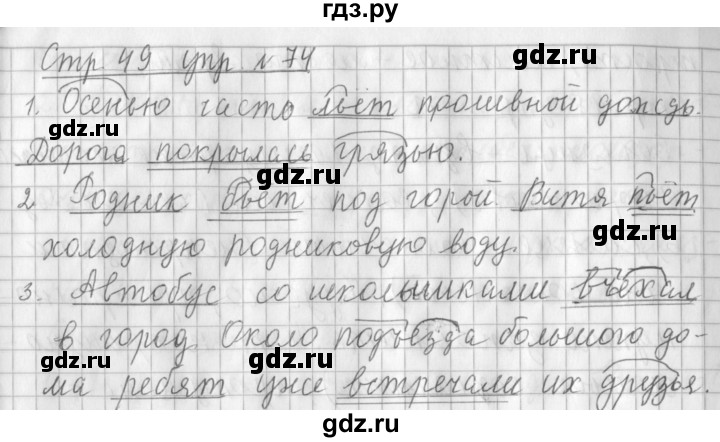 гдз.ру
Стр 49 упр. № 74
gdz.ru
1. Осенью часто льёт проливной дождь.
gdz.ru
gdz.ru
Дорога покрылась грязью.
gdz.ru
2 Родник бьёт под горой. Витя пьёт
gdz.ru
холодную родниковую воду.
gdz.ru
3. Автобус со школьниками въехал
gdz.ru
в город. Около подъезда большого до-
gdz.ru
ма ребят уже встречали их друзья.
gdz.ru
gdz.ru